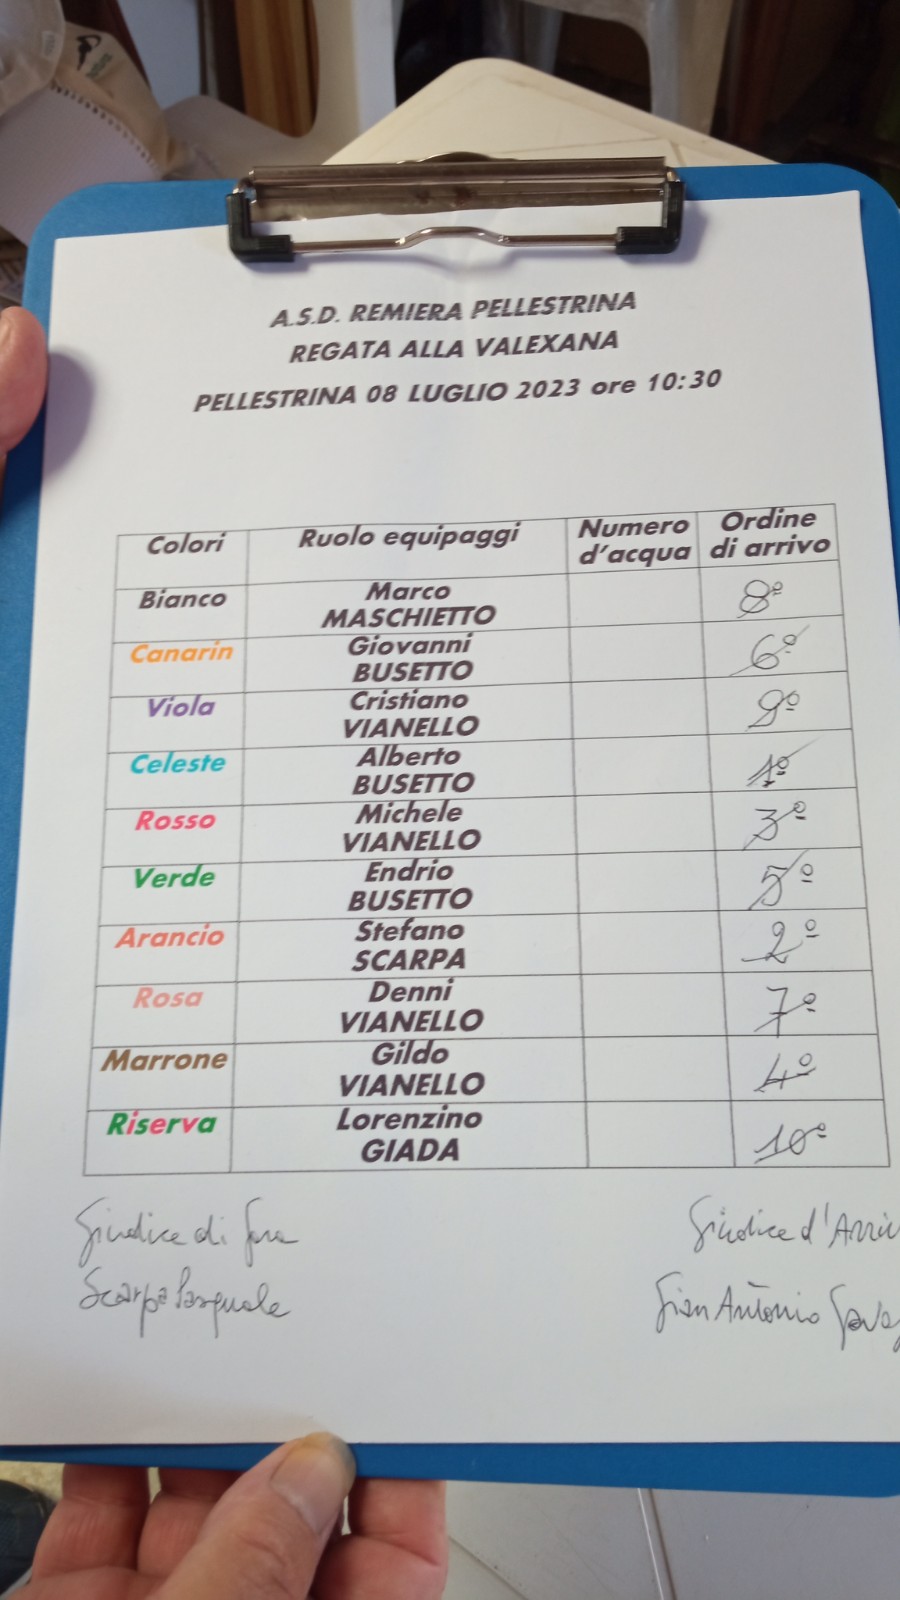 A.S.D. REMIERA PELLESTRINA
REGATA ALLA VALEXANA
PELLESTRINA 08 LUGLIO 2023 ore 10:30
Colori Ruolo equipaggi Numero d'acqua Ordine di arrivo
Bianco Marco MASCHIETTO 8º
Canarin Giovanni BUSETTO 6º
Viola Cristiano VIANELLO 9º
Celeste Alberto BUSETTO 1º
Rosso Michele VIANELLO 3º
Verde Endrio BUSETTO 5º
Arancio Stefano SCARPA 2º
Rosa Denni VIANELLO 7º
Marrone Gildo VIANELLO 4º
Riserva Lorenzino GIADA 10º
Giudice di Gara Giudice d'Arriv
Scarpa Pasquale Gian Antonio